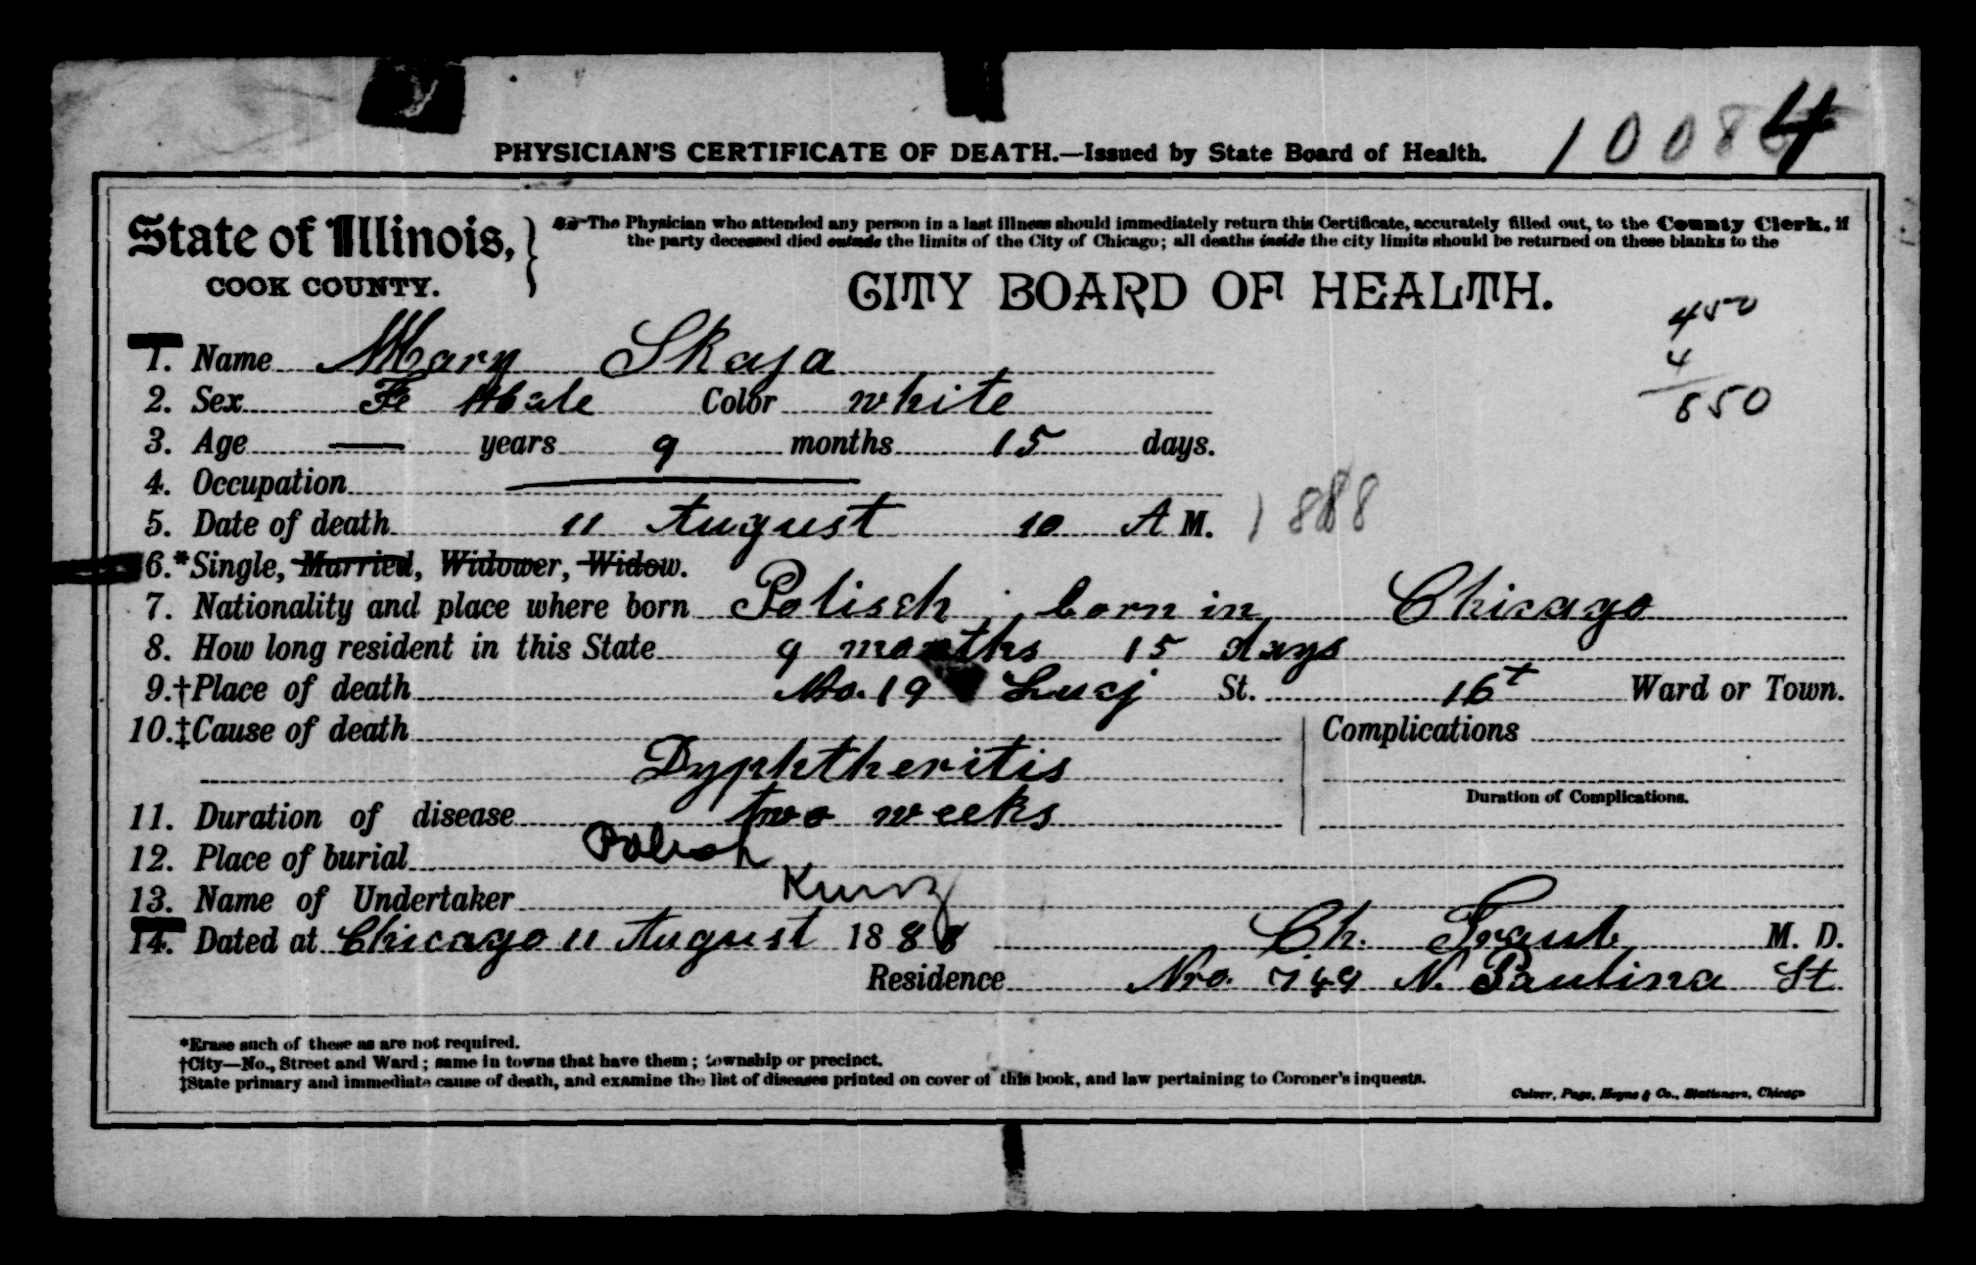 PHYSICIAN'S CERTIFICATE OF DEATH.—Issued by State Board of Health. 10084
State of Illinois,
COOK COUNTY.
The Physician who attended any person in a last illness should immediately return this Certificate, accurately filled out, to the County Clerk, if
the party deceased died outside the limits of the City of Chicago; all deaths inside the city limits should be returned on these blanks to the
CITY BOARD OF HEALTH.
450
4
850
1. Name Mary Skaja
2. Sex Fe Male Color white
3. Age — years 9 months 15 days.
4. Occupation —
5. Date of death 11 August 10 A M. 1888
6.*Single, Married, Widower, Widow.
7. Nationality and place where born Polisch born in Chicago
8. How long resident in this State 9 months 15 days
9.†Place of death No. 19 St. 16t Ward or Town.
10.‡Cause of death
Dyphtheritis
Complications
Duration of Complications.
11. Duration of disease two weeks
12. Place of burial Polish
13. Name of Undertaker Kunz
14. Dated at Chicago 11 August 1888 Ch. Traub M. D.
Residence Nro. 749 N. Paulina St
*Erase such of these as are not required.
†City—No., Street and Ward; same in towns that have them; township or precinct.
‡State primary and immediate cause of death, and examine the list of diseases printed on cover of this book, and law pertaining to Coroner's inquests.
Culver, Page, Hoyne & Co., Stationers, Chicago